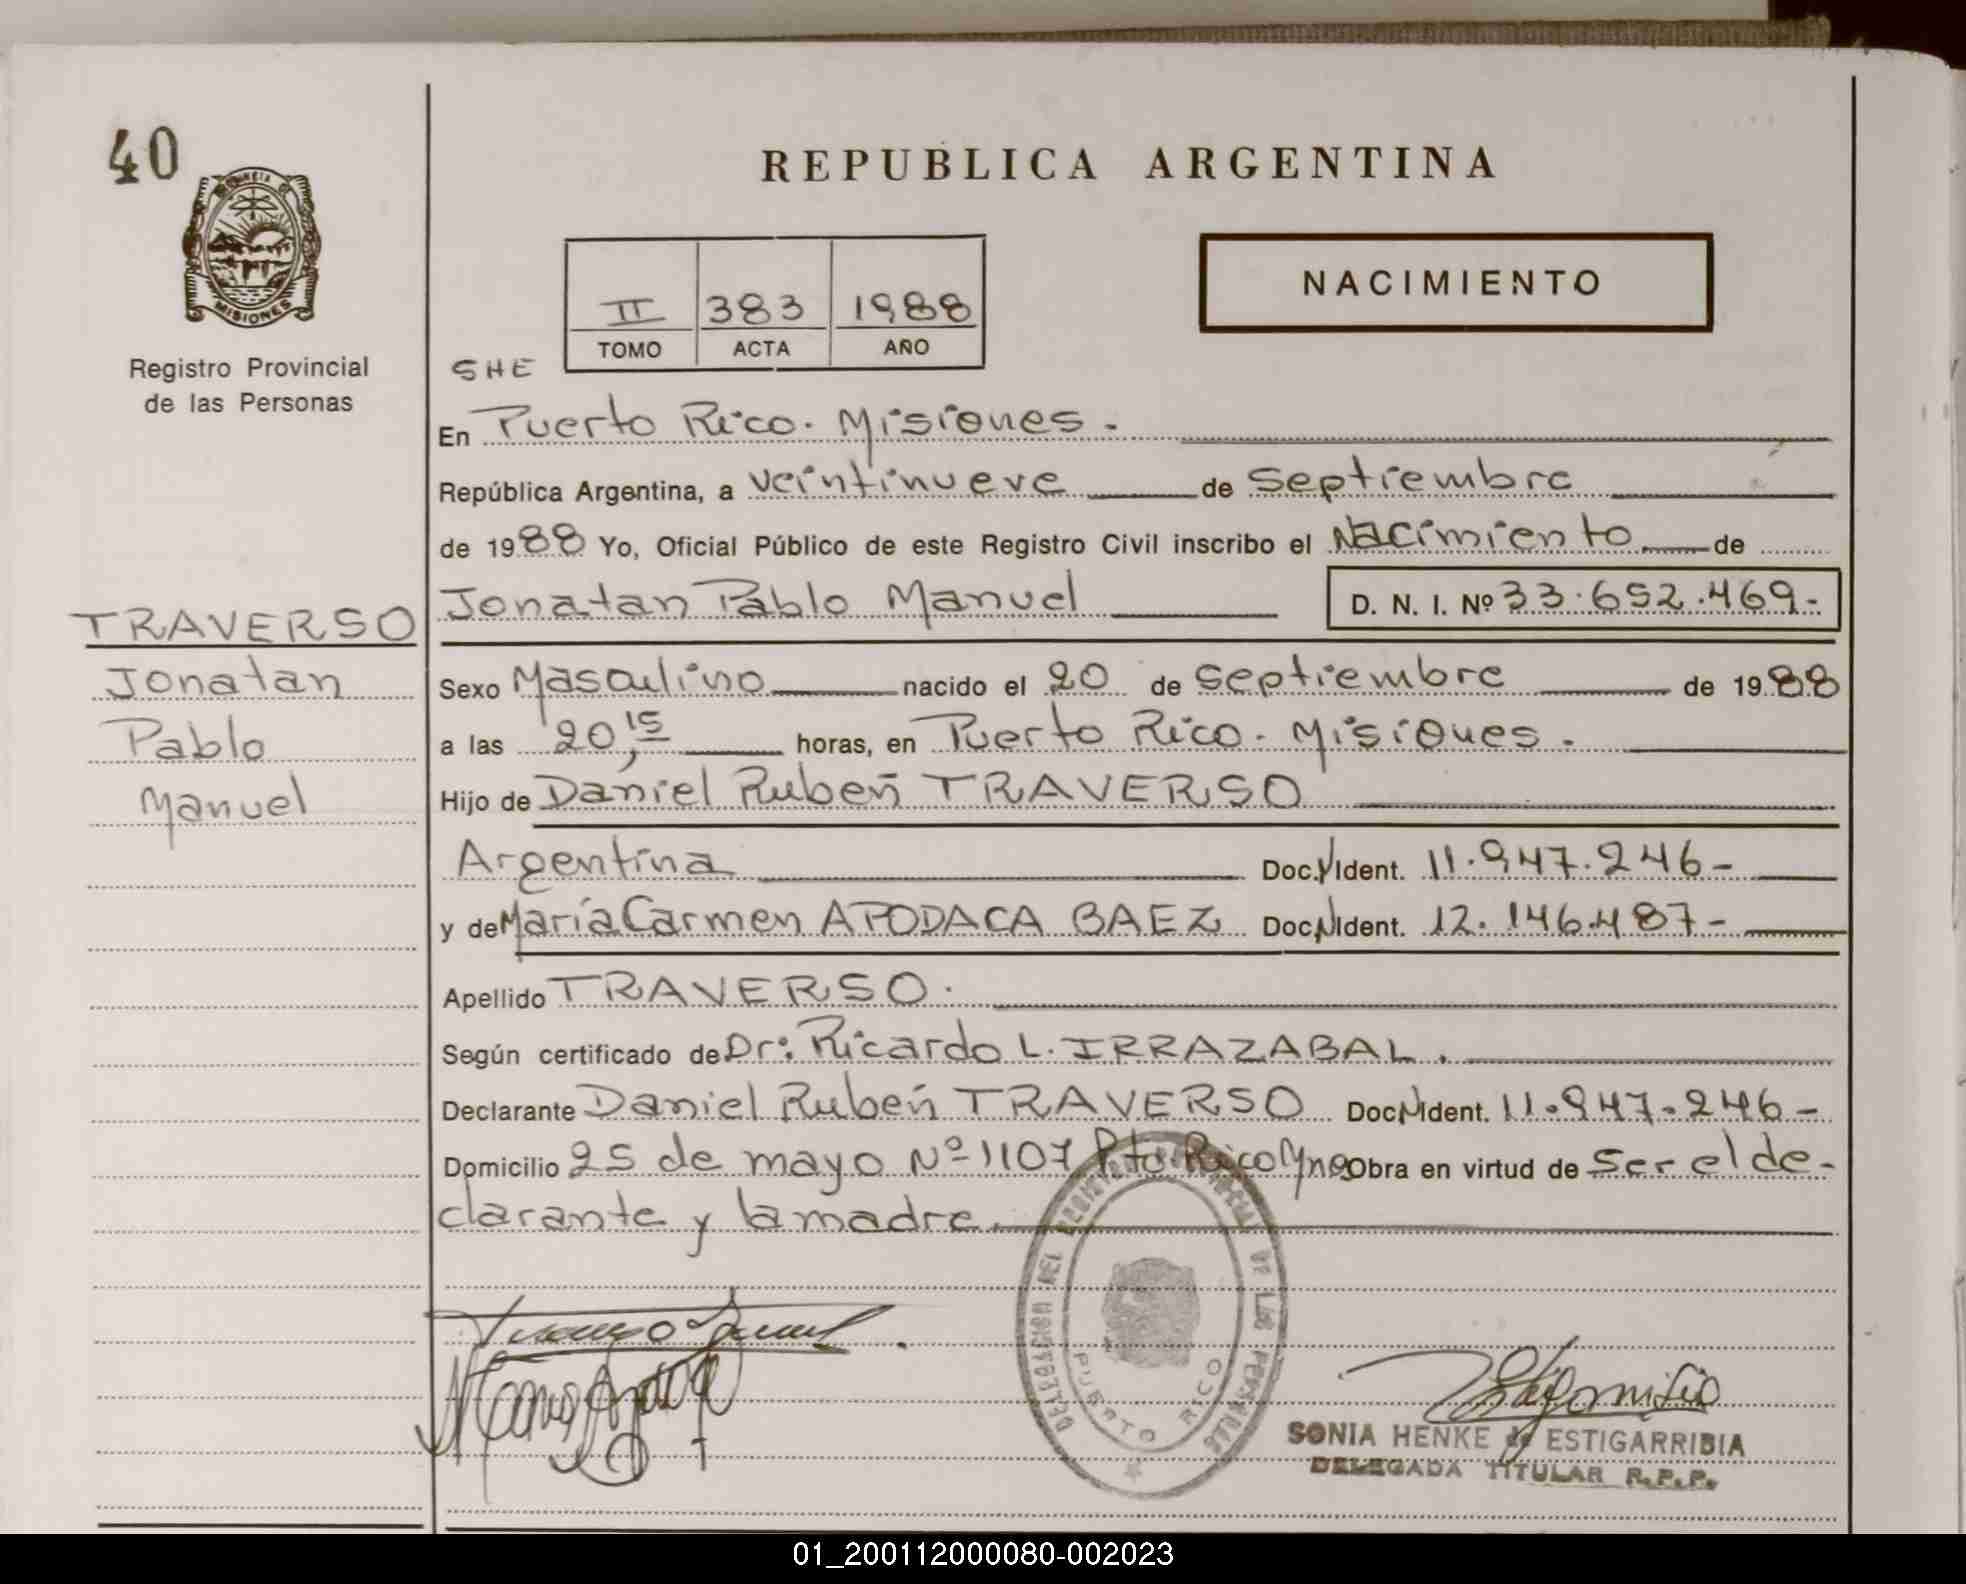 40
PROVINCIA DE
MISIONES
Registro Provincial
de las Personas
REPUBLICA ARGENTINA
II 383 1988
TOMO ACTA AÑO
NACIMIENTO
SHE
En Puerto Rico. Misiones.
República Argentina, a veintinueve de septiembre
de 1988 Yo, Oficial Público de este Registro Civil inscribo el Nacimiento de
Jonatan Pablo Manuel D. N. I. Nº 33.652.469-
TRAVERSO
Jonatan
Pablo
Manuel
Sexo Masculino nacido el 20 de septiembre de 1988
a las 20,15 horas, en Puerto Rico. Misiones.
Hijo de Daniel Rubén TRAVERSO
Argentina Doc. Ident. 11.947.246-
y de María Carmen APODACA BAEZ Doc. Ident. 12.146.487-
Apellido TRAVERSO.
Según certificado de Dr: Ricardo L. IRRAZABAL.
Declarante Daniel Rubén TRAVERSO Doc. Ident. 11.947.246-
Domicilio 25 de mayo Nº 1107 Pto Rico Mnes Obra en virtud de ser el de-
clarante y la madre.
DELEGACION DEL REGISTRO PROVINCIAL DE LAS PERSONAS
PUERTO RICO
SONIA HENKE de ESTIGARRIBIA
DELEGADA TITULAR R.P.P.
01_200112000080-002023